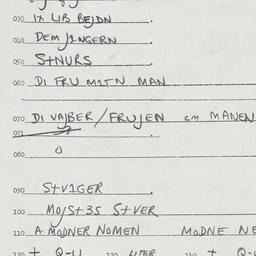 030 IX LIB BEJDN
040 DEM JINGERN
050 S+NURS
060 DI FRU M1TN MAN
070 DI VAJBER/FRUJEN cm MANEN
071
080 0
090 S+V1GER
100 MOJS+3S S+VER
110 A MODNER NOMEN MODNE NE
120 + Q-U 130 LITER 140 + Q-U